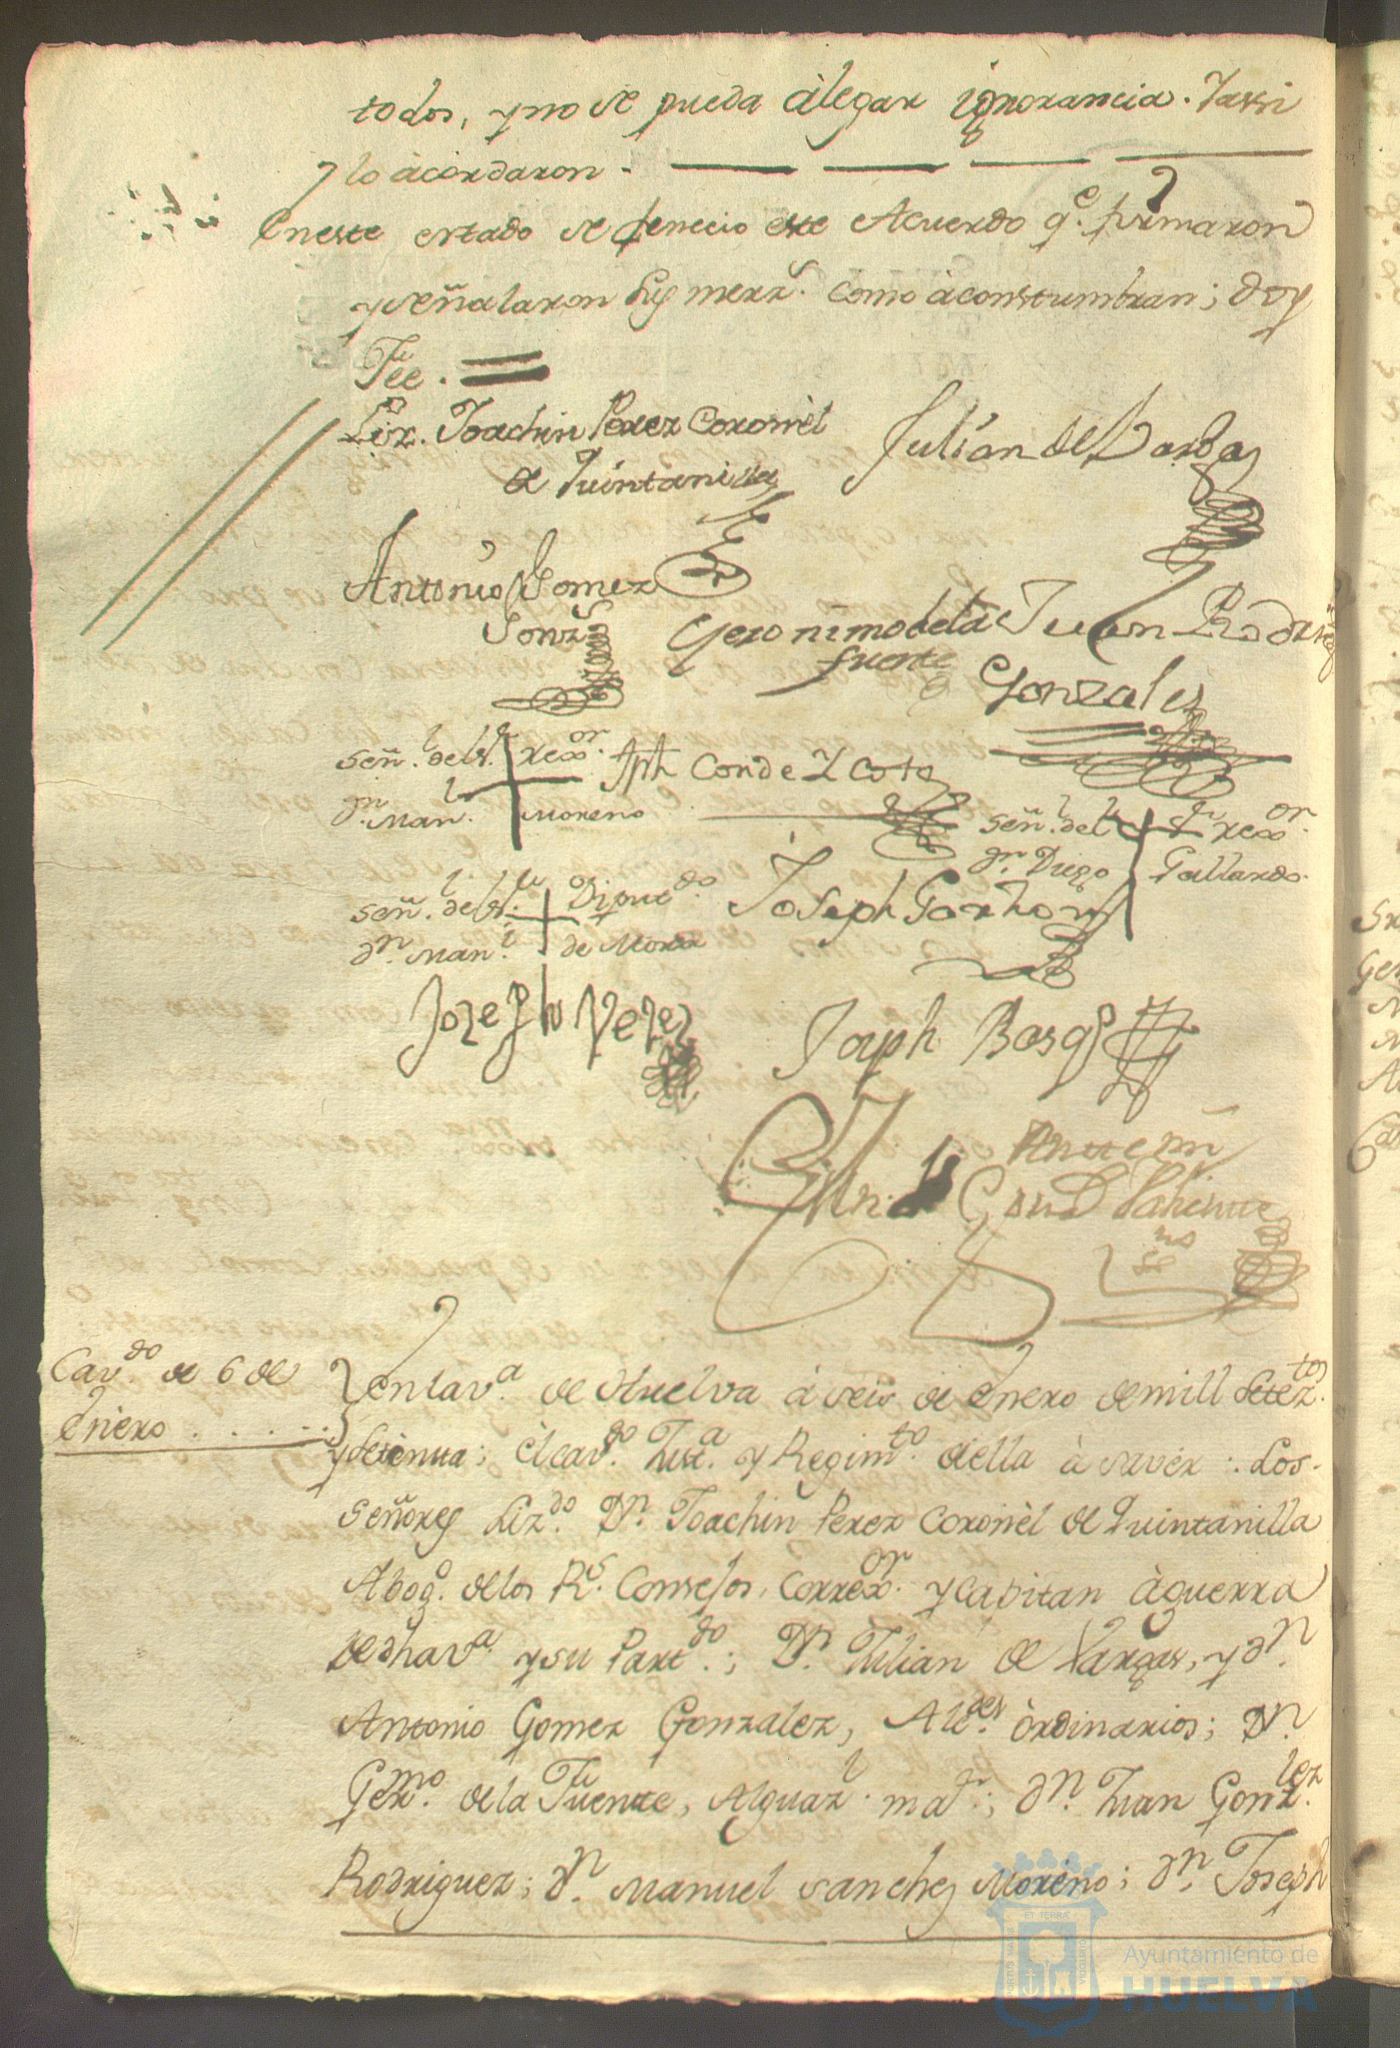 todos, y no se pueda àlegar ignorancia. Y assi
lo àcordaron.
En este estado se fenecio este Acuerdo q.e firmaron
y señalaron sus merz.s como àconstumbran; doy
Fee.
Liz.do Joachin Perez Coronèl
de Quintanilla
Julian de Bargas
Antonio Gomez
Gonz.s
Geronimo de la
fuente
Juan Rodrig.z
Gonzales
señ.l del s.r rexor.
Jph Conde Y Coto
dn. Man.l Moreno
señ.l del s.r rexor.
dn. Diego Gallardo
señ.l del s.r Diput.do
Joseph Garzon
dn. Man.l de Mora
Jozeph Velez
Joseph Basq
Ante mi
Cav.do de 6 de
Enero
Y en la v.a de Huelva à seis de Enero de mill setez.tos
y setenta; èl cav.do Just.a y Regim.to de ella à saver: Los
Señores Liz.do Dn. Joachin Perez Coronèl de Quintanilla
Abog.o de los R.s Consejos, Correx.or y Capitan àguerra
de dha v.a y su Part.do; Dn. Julian de Vargas, y dn.
Antonio Gomez Gonzalez, Alc.des òrdinarios; Dn.
Ger.mo de la Fuente, Alguaz.l ma.r; dn. Juan Gonz.lez
Rodriguez; dn. Manuel Sanchez Moreno; dn. Joseph
Ayuntamiento de
HUELVA